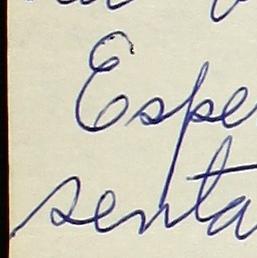 Espe
senta